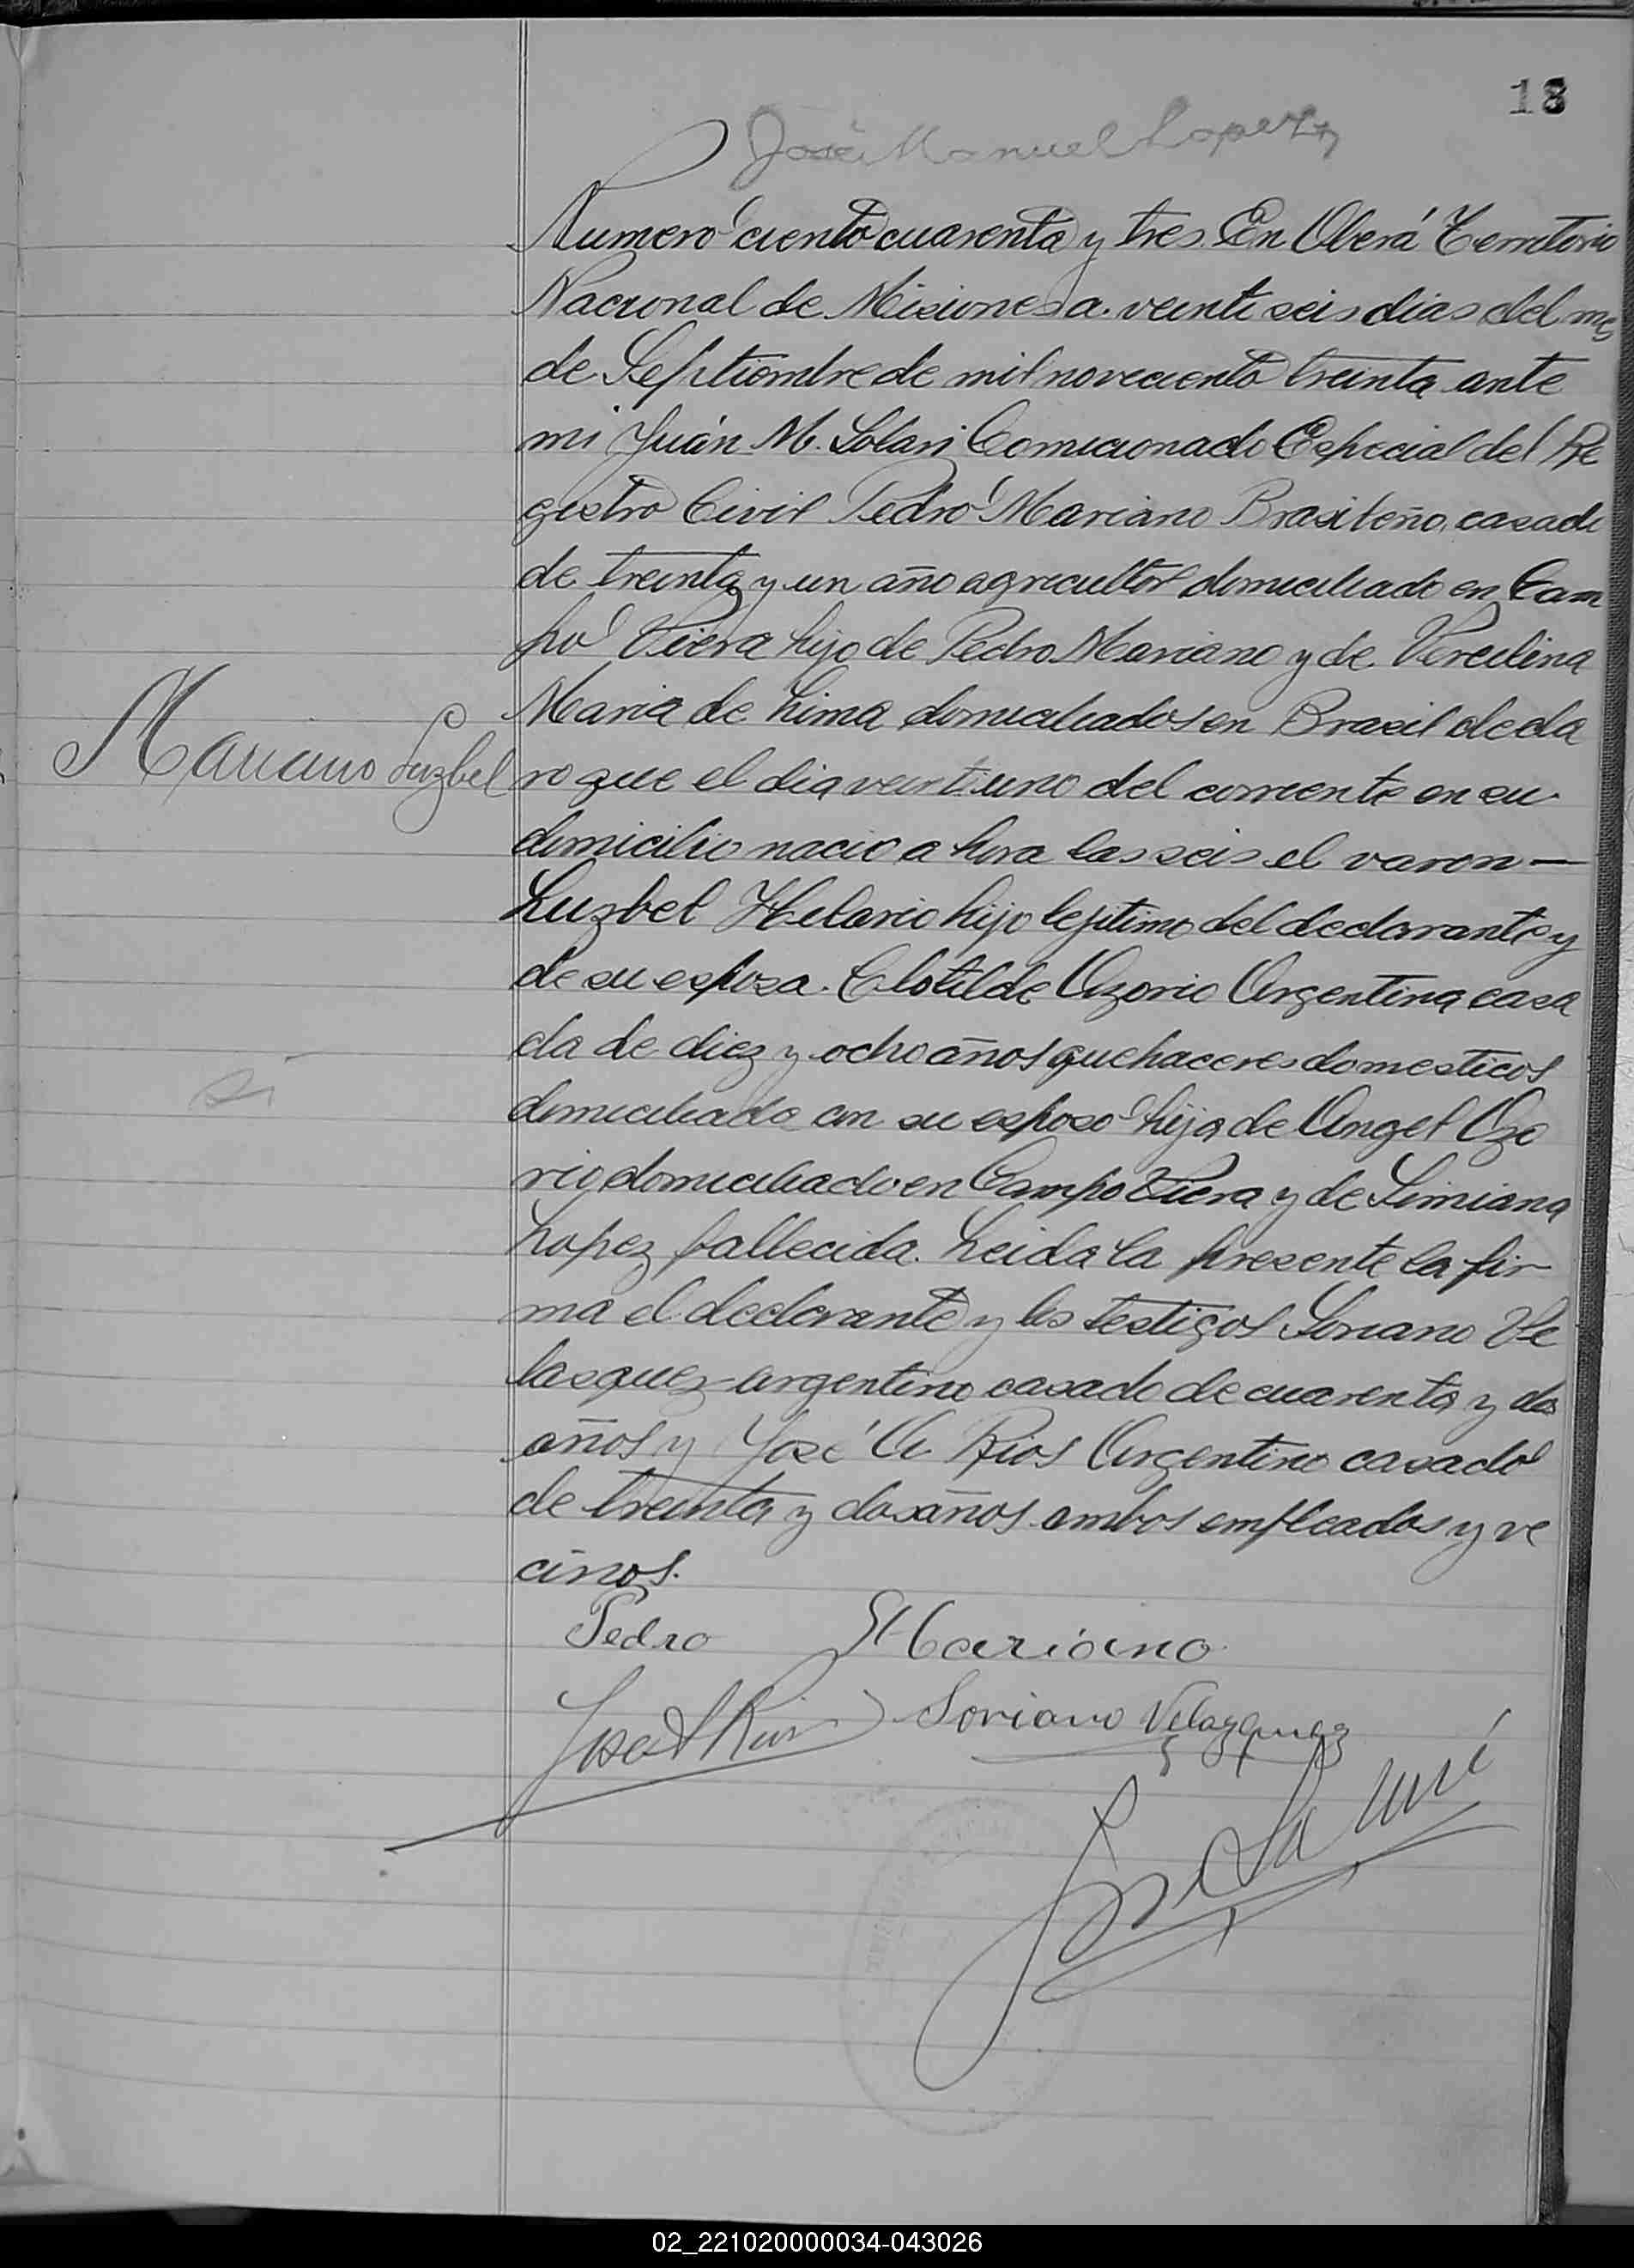 18
José Manuel Lopez
Numero ciento cuarenta y tres En Oberá Territorio
Nacional de Misiones a veinte seis dias del mes
de Septiembre de mil noveciento treinta ante
mi Juán M. Solari Comicionado Especial del Re
gistro Civil Pedro Mariano Brasileño, casado
de treinta y un año agricultor domiciliado en Cam
po Viera hijo de Pedro Mariano y de Verculina
Maria de Lima domiciliados en Brasil decla
Mariano Luzbel
ro que el dia veintiuno del corriente en su
domicilio nacio a hora las seis el varon —
Luzbel Hilario hijo lejitimo del declarante y
de su esposa. Clotilde Ozorio Argentina casa
da de diez y ocho años quehaceres domesticos
domiciliado con su esposo hija de Angel Ozo
rio domiciliado en Campo Viera y de Simiana
Lopez fallecida. Leida la presente la fir
ma el declarante y los testigos Soriano Ve
lasquez argentino casado de cuarenta y dos
años y José A. Rios Argentino casado
de treinta y dos años ambos empleados y ve
cinos.
Pedro Mariano
José A Rios Soriano Velazquez
02_221020000034-043026